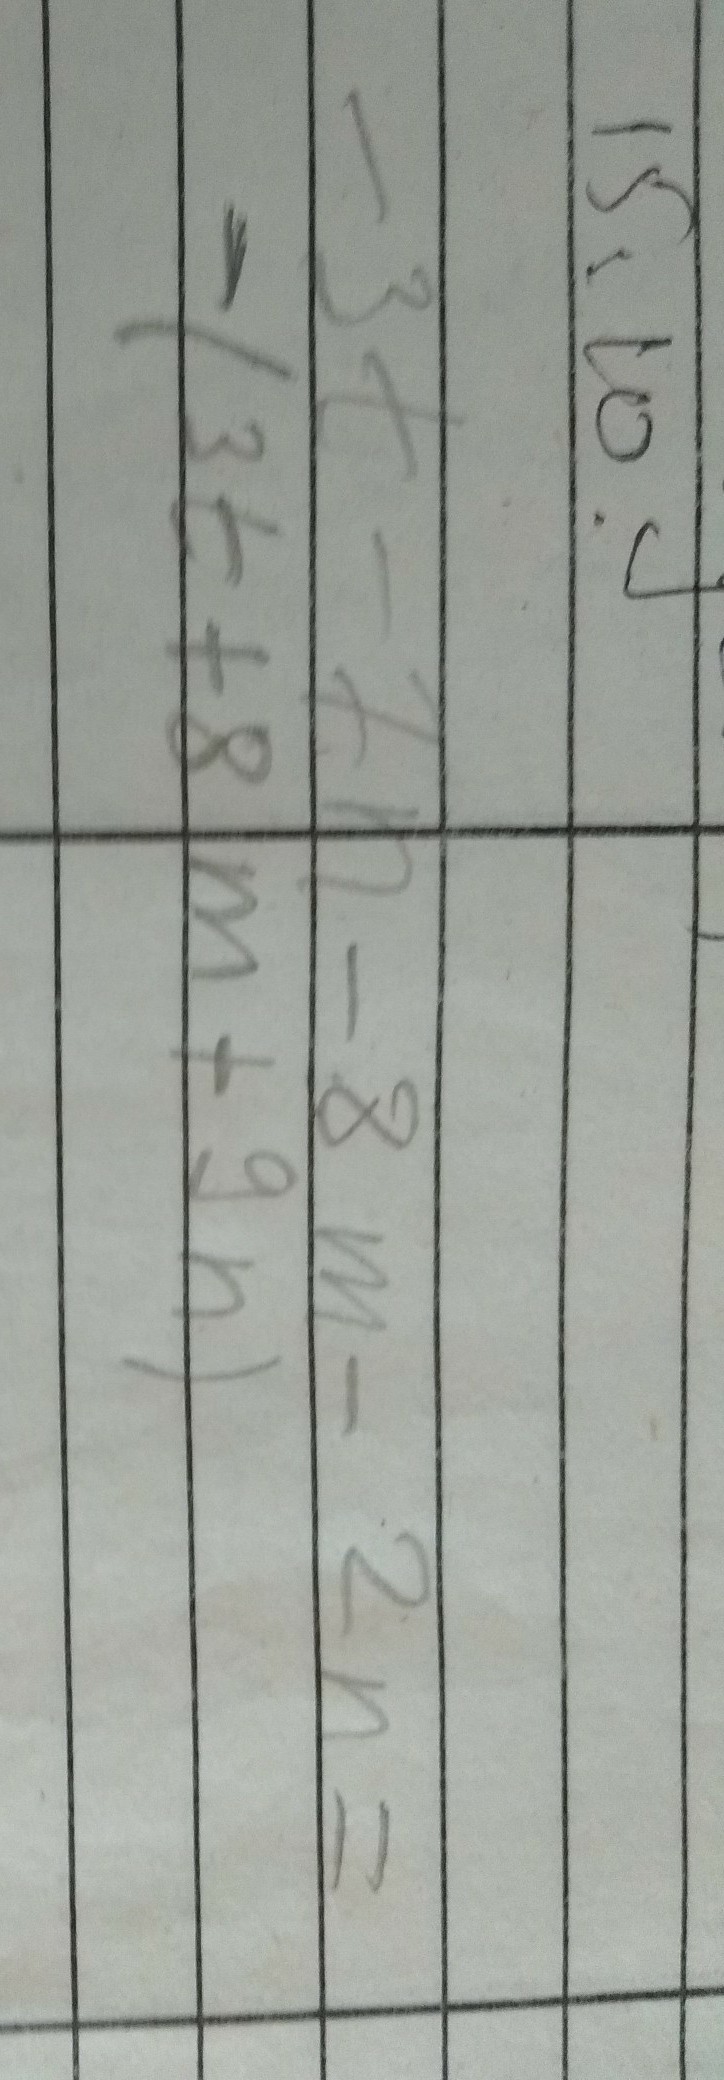 15.10.
-3t-7n-8m-2n=
-(3t+8m+9n)